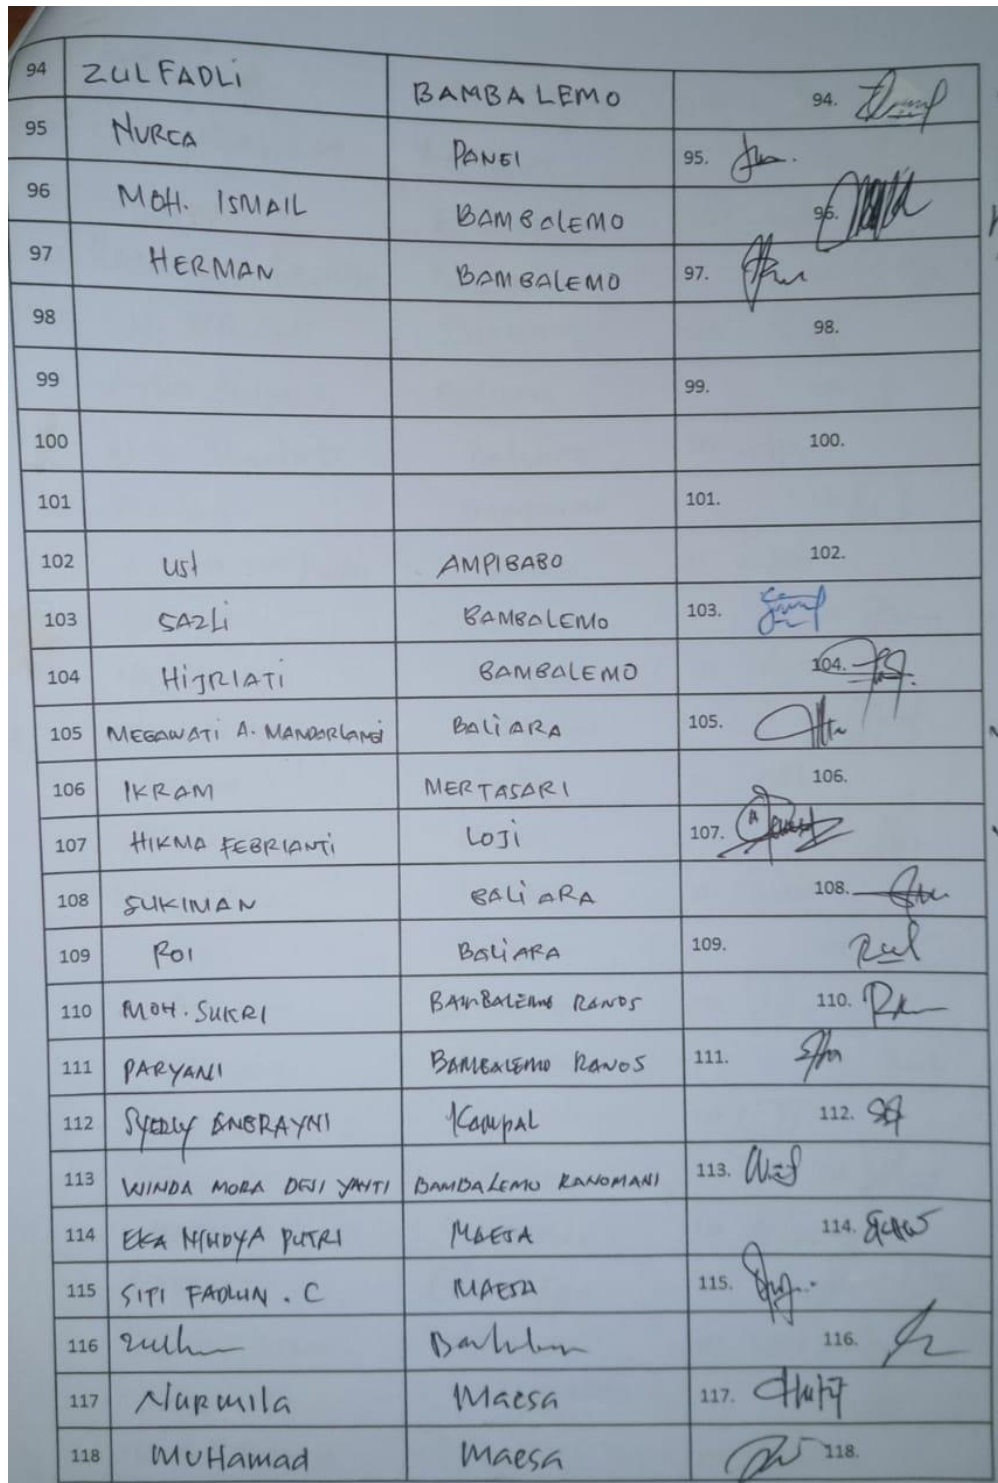 94 ZULFADLI BAMBALEMO 94.
95 NURCA PANGI 95.
96 MOH. ISMAIL BAMBALEMO 96.
97 HERMAN BAMBALEMO 97.
98 98.
99 99.
100 100.
101 101.
102 Ust AMPIBABO 102.
103 SAZLi BAMBALEMO 103.
104 HIJRIATI BAMBALEMO 104.
105 MEGAWATI A. BALIARA 105.
106 IKRAM MERTASARI 106.
107 HIKMA FEBRIANTI LOJI 107.
108 SUKIMAN BALIARA 108.
109 ROI BALIARA 109.
110 MOH. SUKRI BAMBALEMO RANOS 110.
111 PARYANI BAMBALEMO RANOS 111.
112 Kampal 112.
113 WINDA MORA DESI YANTI BAMBALEMO RANOMANI 113.
114 EKA NINDYA PUTRI MAESA 114.
115 SITI . C MAESA 115.
116 116.
117 Nurmila Maesa 117.
118 MuHamad Maesa 118.